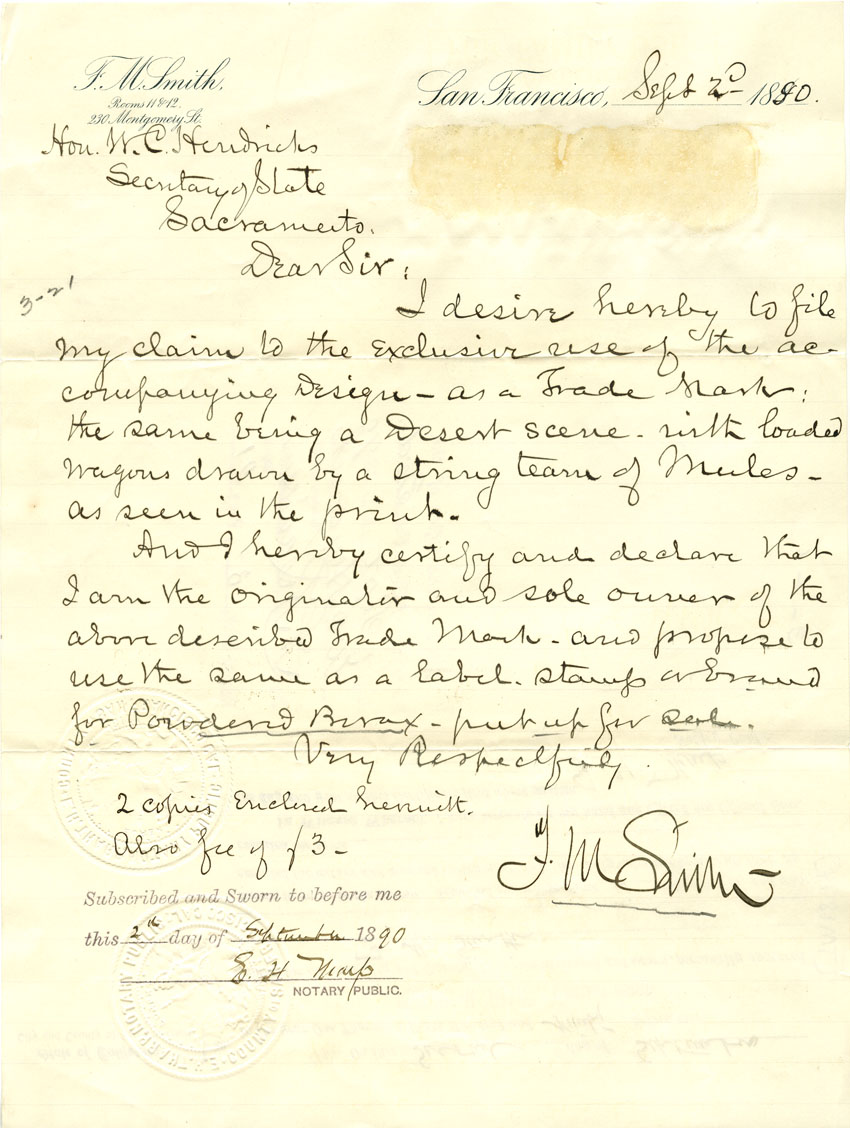 F. M. Smith,
Rooms 11 & 12
230 Montgomery St.
San Francisco, Sept 2d 1890.
Hon. W. C. Hendricks
Secretary of State
Sacramento.
Dear Sir:
3-21
I desire hereby to file
my claim to the exclusive use of the ac-
companying Design - as a Trade Mark:
the same being a Desert scene - with loaded
wagons drawn by a string team of Mules -
as seen in the print.
And I hereby certify and declare that
I am the originator and sole owner of the
above described Trade Mark - and propose to
use the same as a label - stamp or brand
for Powdered Borax - put up for sale.
Very Respectfully
2 copies Enclosed herewith.
Also fee of $3 -
F. M. Smith
Subscribed and Sworn to before me
this 2nd day of September 1890
E. H. Tharp
NOTARY PUBLIC.